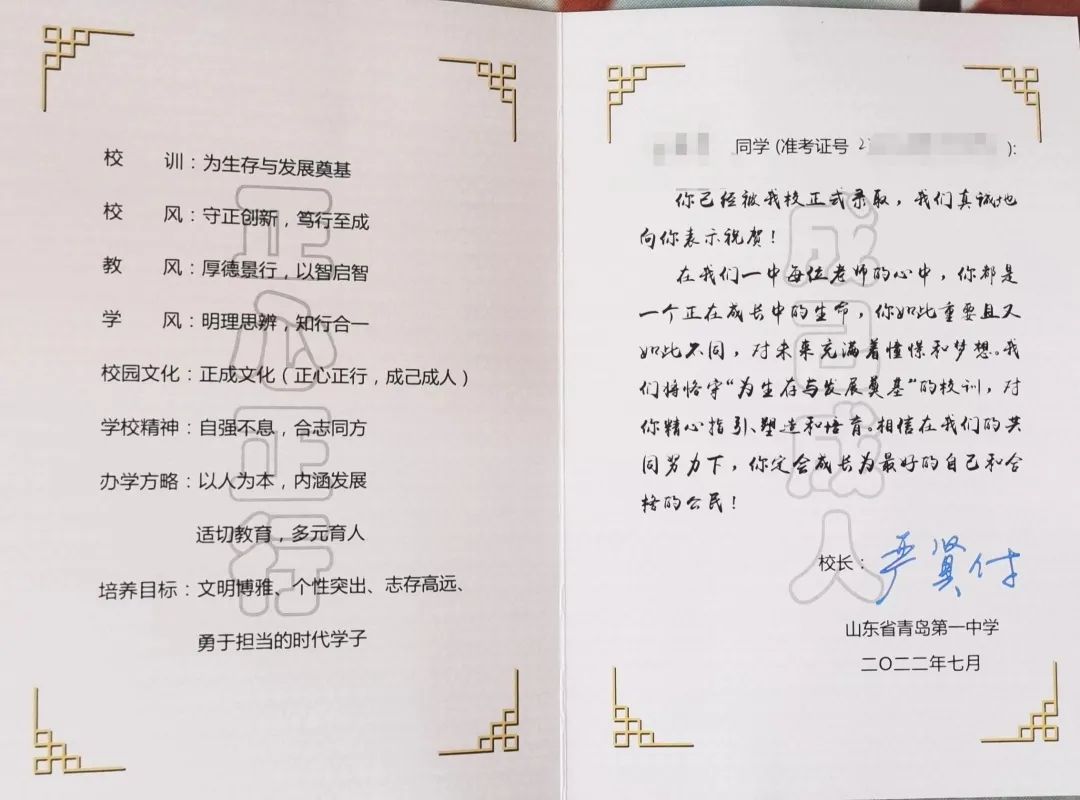 校 训：为生存与发展奠基
校 风：守正创新，笃行至成
教 风：厚德景行，以智启智
学 风：明理思辨，知行合一
校园文化：正成文化（正心正行，成己成人）
学校精神：自强不息，合志同方
办学方略：以人为本，内涵发展
适切教育，多元育人
培养目标：文明博雅、个性突出、志存高远、
勇于担当的时代学子
正心正行
同学 (准考证号 2
):
你已经被我校正式录取，我们真诚地
向你表示祝贺！
在我们一中每位老师的心中，你都是
一个正在成长中的生命，你如此重要且又
如此不同，对未来充满着憧憬和梦想。我
们将恪守“为生存与发展奠基”的校训，对
你精心指引、塑造和培育。相信在我们的共
同努力下，你定会成长为最好的自己和合
格的公民！
校长：严贤付
山东省青岛第一中学
二〇二二年七月
成己成人